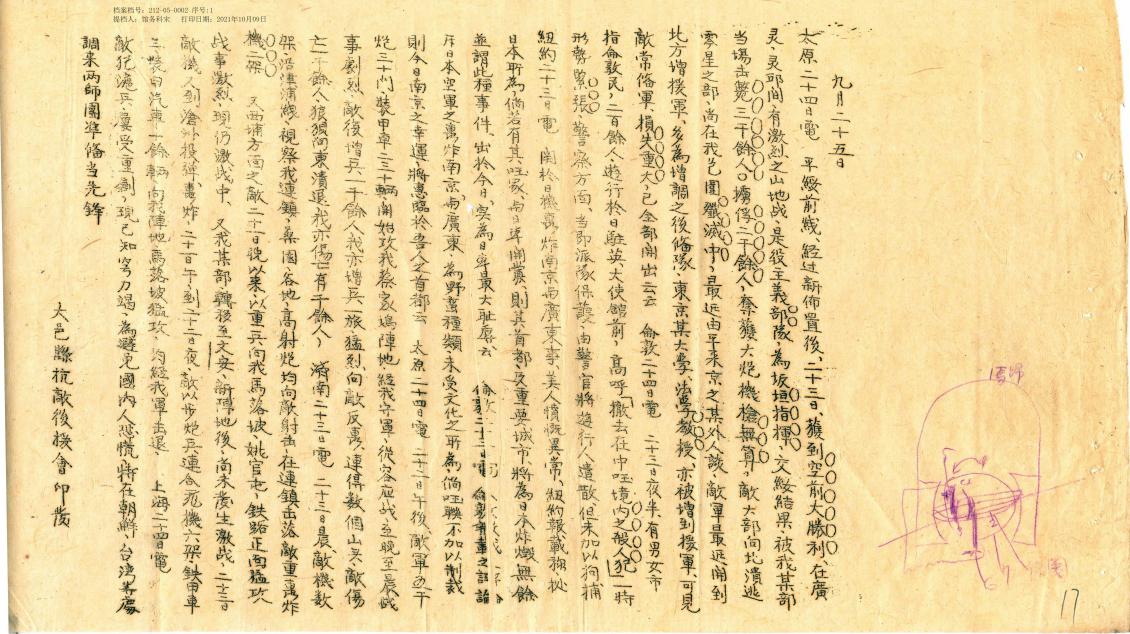 档案档号：212-05-0002 序号:1
提档人：馆务科宋 打印日期：2021年10月09日
九月二十五日
太原二十四日電 平綏前线、经过新佈置後、二十三日、獲到空前大勝利、在廣
灵、灵邱間、有激烈之山地战、是役主義部隊、為坂垣指揮、交綏結果、被我某部
当場击斃二千餘人、擄俘二千餘人、奪獲大炮機槍無算、敵大部向北潰逃
零星之部、尚在我包圍殲滅中、最近由平来京之某外人談、敵軍最近開到
北方增援軍、多為增調之後俻隊、東京某大學、法學教授、亦被增到援軍、可見
敵常俻軍、損失重大、已全部開出云云 倫敦二十四日電 二十三日夜半、有男女市
指倫敦民、二百餘人、遊行於日駐英、大使館前、高呼「撤去在中国境内之殺人犯」一時
形勢緊張、警察方面、当即派隊保護、由警官將遊行人遣散、但未加以拘捕
紐約二十三日電 関於日機轟炸南京与廣東事、美人憤慨異常、紐約報載稱
日本所為倘若有其旺冢、与日準開釁、則其首都、及重要城市、將為日本炸燬無餘
並謂此種事件、出於今日、实為日本最大耻辱云 倫敦二十三日電
斥日本空軍之轟炸南京、与廣東、為野蛮種類、未受文化之所為、倘国联不加以制裁
則今日南京之幸運、將惠臨於吾人之首都云 太原二十四日電 二十二日午後、敵軍五千
炮二十門、装甲車二三十輛、開始攻我蔡家塢陣地、經我守軍、從容应战、至晚至晨戰
事劇烈、敵後增兵、二千餘人、我亦增兵一旅、猛烈向敵反轟、連得數個山头、敵傷
亡二千餘人、狼狽向東潰退、我亦傷亡有千餘人、 濟南二十三日電 二十三日晨、敵機数
架、沿津浦線、視察我連鎮、桑園各地、高射炮均向敵射击、在連鎮击落敵重轟炸
機一架 又西埔方面之敵、二十一日晚以来、以重兵向我馬落坡、姚官屯、鉄路正面猛攻
战事激烈、現仍激战中、 又我某部轉移至文安新陣地後、尚未发生激战、二十三日
敵機八到滄外投彈轟炸、二十一日午到二十三日夜、敵以步炮兵、連合飞機六架、鉄甲車
三、裝甲汽車一餘輛、向我陣地馬落坡猛攻、均經我軍击退、 上海二十四日電
敵犯滬兵、屢受重創、現已知窮力竭、為避免國内人恐慌、特在朝鮮、台湾等處
調来两師團準俻当先鋒
大邑縣抗敵後援會印发
17